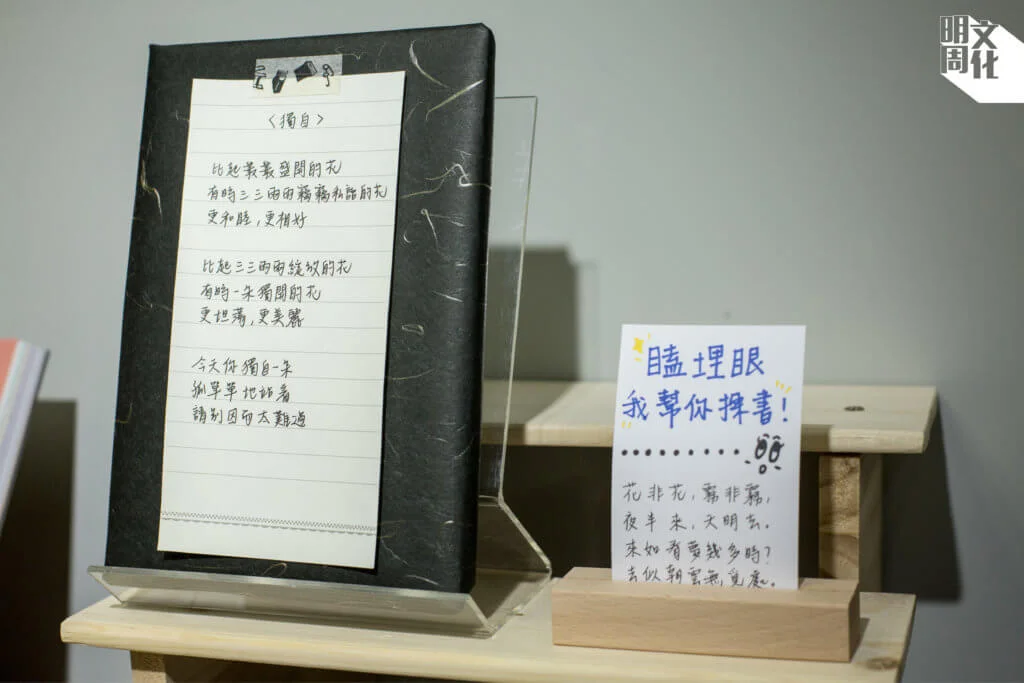 〈獨自〉
比起叢叢盛開的花
有時三三兩兩竊竊私語的花
更和睦,更相好
比起三三兩兩綻放的花
有時一朵獨開的花
更坦蕩,更美麗
今天你獨自一朵
孤單單地站着
請別因而太難過
瞌埋眼
我幫你揀書!
花非花,霧非霧,
夜半來,天明去。
來如春夢幾多時?
去似朝雲無覓處。
明周
文化